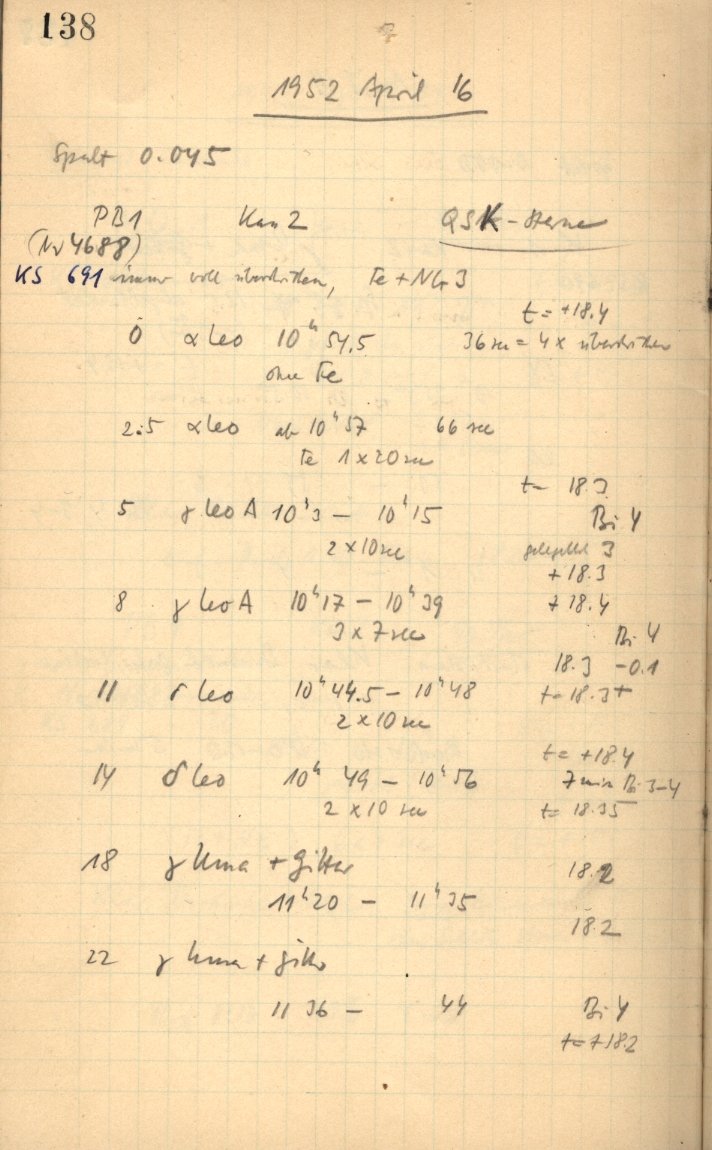 138
1952 April 16
Spalt 0.045
PB1 Kas 2 QSK-Sterne
(Nr 4688)
KS 691 immer voll überstrichen, Te + NG 3
t = +18.4
0 α Leo 10ʰ 54.5 36 sec = 4 x überstrichen
ohne Te
2.5 α Leo ab 10ʰ 57 66 sec
Te 1 x 20 sec
t = 18.3
5 γ Leo A 10ʰ 3 – 10ʰ 15 Bi 4
2 x 10 sec 3
+ 18.3
8 γ Leo A 10ʰ 17 – 10ʰ 39 + 18.4
3 x 7 sec Bi 4
18.3 - 0.1
11 Leo 10ʰ 44.5 – 10ʰ 48 t = 18.3+
2 x 10 sec
t = +18.4
14 δ Leo 10ʰ 49 – 10ʰ 56 7 min Bi 3-4
2 x 10 sec t = 18.35
18 γ Uma + Gitter 18.2
11ʰ 20 – 11ʰ 35
18.2
22 γ Uma + Gitter
11 36 – 44 Bi 4
t = +18.2